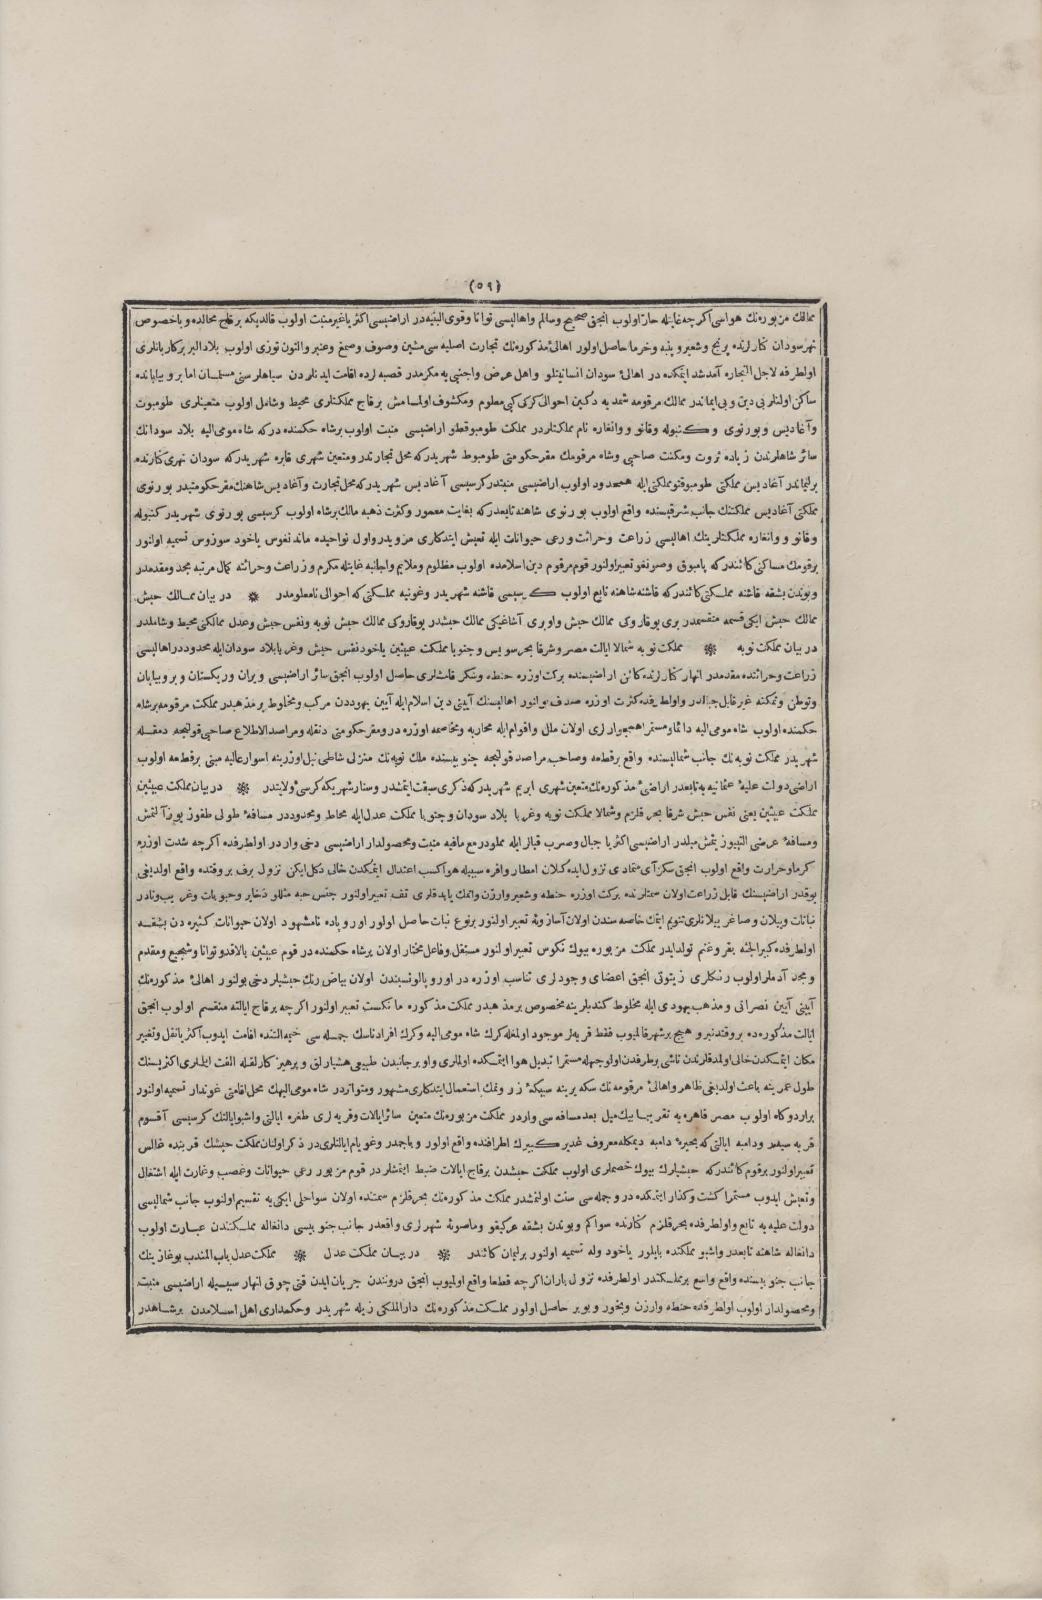 (٥٩)
ممالك مزبوره‌نك هواسی اکرچه غایتله حار اولوب انجق صحیح وسالم واهالیسی توانا وقوی البنیه در اراضیسی اکثریا غیر منبت اولوب قالدیکه برقاج محالده وباخصوص
نهر سودان کنارلرنده پرنج وشعیر وپنبه وخرما حاصل اولور اهالئ مذکوره‌نك تجارت اصلیه سی مشین وصوف وصمغ وعنبر والتون توزی اولوب بلاد البربر کاربانلری
اولطرفه لاجل التجاره آمدشد ایتمکده در اهالئ سودان انسانیتلو واهل عرض واجنبی یه مکرمدر قصبه لرده اقامت ایدنلردن سیاهلر سنی مسلمان اما بر وبیابانده
ساکن اولنلر بی دین وبی ایماندر ممالك مرقومه شمدیه دکین احوالی کرکی کبی معلوم ومکشوف اولمامش برقاج مملکتلری محیط وشامل اولوب متعینلری طومبوت
وآغادیس وبورنوی وکنبوله وقانو ووانغاره نام مملکتلردر مملکت طومبوقطو اراضیسی منبت اولوب برشاه حکمنده در که شاه مومی الیه بلاد سودانك
سائر شاهلرندن زیاده ثروت ومکنت صاحبی وشاه مرقومك مقر حکومتی طومبوط شهریدر که محل تجارتدر ومتعین شهری قابره شهریدر که سودان نهری کنارنده
برلیماندر آغادیس مملکتی طومبوقتو مملکتی ایله همحدود اولوب اراضیسی منبتدر کرسیسی آغادیس شهریدر که محل تجارت وآغادیس شاهنك مقر حکومتیدر بورنوی
مملکتی آغادیس مملکتنك جانب شرقیسنده واقع اولوب بورنوی شاهنه تابعدر که بغایت معمور وکثرت ذهبه مالك برشاه اولوب کرسیسی بورنوی شهریدر کنبوله
وقانو ووانغاره مملکتلرینك اهالیسی زراعت وحراثت ورعی حیوانات ایله تعیش ایتدکلری مرویدر واول نواحیده ماندنغوس یاخود سوزوس تسمیه اولنور
برقومك مساکنی کائندر که پامبوق وصونغو تعبیر اولنور قوم مرقوم دین اسلامده اولوب مظلوم وملایم واجانبه غایتله مکرم وزراعت وحراثته کمال مرتبه مجد ومقدمدر
وبوندن بشقه قاشنه مملکتی کائندر که قاشنه شاهنه تابع اولوب کرسیسی قاشنه شهریدر وغونیه مملکتی که احوالی نامعلومدر ❋ در بیان ممالك حبش
ممالك حبش ایکی قسمه منقسمدر بری یوقاروکی ممالك حبش واو بری آشاغیکی ممالك حبشدر یوقاروکی ممالك حبش نوبه ونفس حبش وعدل ممالکنی محیط وشاملدر
در بیان مملکت نوبه ❋ مملکت نوبه شمالا ایالت مصر وشرقا بحر سویس وجنوبا مملکت عبیثین یاخود نفس حبش وغربا بلاد سودان ایله محدوددر اهالیسی
زراعت وحراثتده مقدمدر انهار کنارلرنده کائن اراضیسنده برکت اوزره حنطه وشکر قامشلری حاصل اولوب انجق سائر اراضیسی ویران وریکستان وبر وبیابان
وتوطن وتمکنه غیر قابل جباللر واولطرفده کثرت اوزره صدف بولنور اهالیسنك آیینی دین اسلام ایله آیین یهوددن مرکب ومخلوط برمذهبدر مملکت مرقومه برشاه
حکمنده اولوب شاه مومی الیه دائما ومستمرا همجوارلری اولان ملل واقوام ایله محاربه ومخاصمه اوزره در ومقر حکومتی دنقله ومراصد الاطلاع صاحبی قولنجه دمقله
شهریدر مملکت نوبه‌نك جانب شمالیسنده واقع برقطعه وصاحب مراصد قولنجه جنوبیسنده ملك نوبه‌نك منزلی شاطئ نیل اوزرینه اسوار عالیه مبنی برقطعه اولوب
اراضی دولت علیۀ عثمانیه یه تابعدر اراضئ مذکوره‌نك متعین شهری ابریم شهریدر که ذکری سبقت ایتمشدر وسنار شهری که کرسئ ولایتدر ❋ در بیان مملکت عبیثین
مملکت عبیثین یعنی نفس حبش شرقا بحر قلزم وشمالا مملکت نوبه وغربا بلاد سودان وجنوبا مملکت عدل ایله محاط ومحدوددر مسافۀ طولی طقوز یوز آلتمش
ومسافۀ عرضی التیوز یتمش میلدر اراضیسی اکثریا جبال وصرب قیالر ایله مملودر مع مافیه منبت ومحصولدار اراضیسی دخی واردر اولطرفده اکرچه شدت اوزره
کرما وحرارت واقع اولوب انجق سکز آی متمادی نزول ایده کلان امطار وافره سبیله هوا کسب اعتدال ایتمکدن خالی دکل ایکن نزول برف بروقتده واقع اولدیغی
یوقدر اراضیسنك قابل زراعت اولان محللرنده برکت اوزره حنطه وشعیر وارزن واتمك یاپدقلری تف تعبیر اولنور جنس حبه مثللو ذخایر وحبوبات وغریب ونادر
نباتات ویبلان وصاغر ییلانلری تنویم ایتمك خاصه سندن اولان آسازوئه تعبیر اولنور برنوع نبات حاصل اولور اوروپاده نامشهود اولان حیوانات کثیره دن بشقه
اولطرفده کبیر الجثه بقر وغنم تولد ایدر مملکت مزبوره بیوك نکوس تعبیر اولنور مستقل وفاعل مختار اولان برشاه حکمنده در قوم عبیثین بالاقد وتوانا وشجیع ومقدم
ومجد آدملر اولوب رنکلری زیتونی انجق اعضای وجودلری تناسب اوزره در اوروپالو نسبندن اولان بیاض رنك حبشیلر دخی بولنور اهالئ مذکوره‌نك
آیینی آیین نصرانی ومذهب یهودی ایله مخلوط کندیلرینه مخصوص برمذهبدر مملکت مذکوره مانکست تعبیر اولنور اکرچه برقاج ایالته منقسم اولوب انجق
ایالت مذکوره ده بروقتدنبرو هیچ برشهر قالمیوب فقط قریه لر موجود اولمغله کرك شاه مومی الیه وکرك افراد ناسك جمله سی خیمه التنده اقامت ایدوب اکثریا نقل وتغییر
مکان ایتمکدن خالی اولمدقلرندن ناشی برطرفدن اولوجهله مستمرا تبدیل هوا ایتمکده اولملری واو بر جانبدن طبیعی هشیارلق وپرهیزکارلقله الفت ایتملری اکثریسنك
طول عمرینه باعث اولدیغی ظاهر واهالئ مرقومه‌نك سکه یرینه سبیکۀ زر ونمك استعمال ایتدکلری مشهور ومتواتردر شاه مومی الیهك محل اقامتی غوندار تسمیه اولنور
براردوکاه اولوب مصر قاهره یه تقریبا بیك میل بعد مسافه سی واردر مملکت مزبوره‌نك متعین سائر ایالات وقریه لری طغره ایالتی واشبو ایالتك کرسیسی آقسوم
قریه سیدر ودامبه ایالتی که بحیرۀ دامبه دیمکله معروف غدیر کبیرك اطرافنده واقع اولور وباجمدر وغویام ایالتلری در ذکر اولنان مملکت حبشك قربنده غالس
تعبیر اولنور برقوم کائندر که حبشیلرك بیوك خصملری اولوب مملکت حبشدن برقاج ایالات ضبط ایتمشلر در قوم مزبور رعی حیوانات وغصب وغارت ایله اشتغال
وتعیش ایدوب مستمرا کشت وکذار ایتمکده در وجمله سی سنت اولنمشدر مملکت مذکوره‌نك بحر قلزم سمتنده اولان سواحلی ایکی یه تقسیم اولنوب جانب شمالیسی
دولت علیه یه تابع واولطرفده بحر قلزم کنارنده سواکم وبوندن بشقه عرکیقو وماصوئه شهرلری واقعدر جانب جنوبیسی دانغاله مملکتندن عبارت اولوب
دانغاله شاهنه تابعدر واشبو مملکتده بایلور یاخود وله تسمیه اولنور برلیمان کائندر ❋ در بیان مملکت عدل ❋ مملکت عدل باب المندب بوغازینك
جانب جنوبیسنده واقع واسع برمملکتدر اولطرفده نزول باران اکرچه قطعا واقع اولمیوب انجق دروننـدن جریان ایدن قتی چوق انهار سبیله اراضیسی منبت
ومحصولدار اولوب اولطرفده حنطه وارزن وبخور وبوبر حاصل اولور مملکت مذکوره‌نك دار الملکی زیله شهریدر وحکمداری اهل اسلامدن برشاهدر